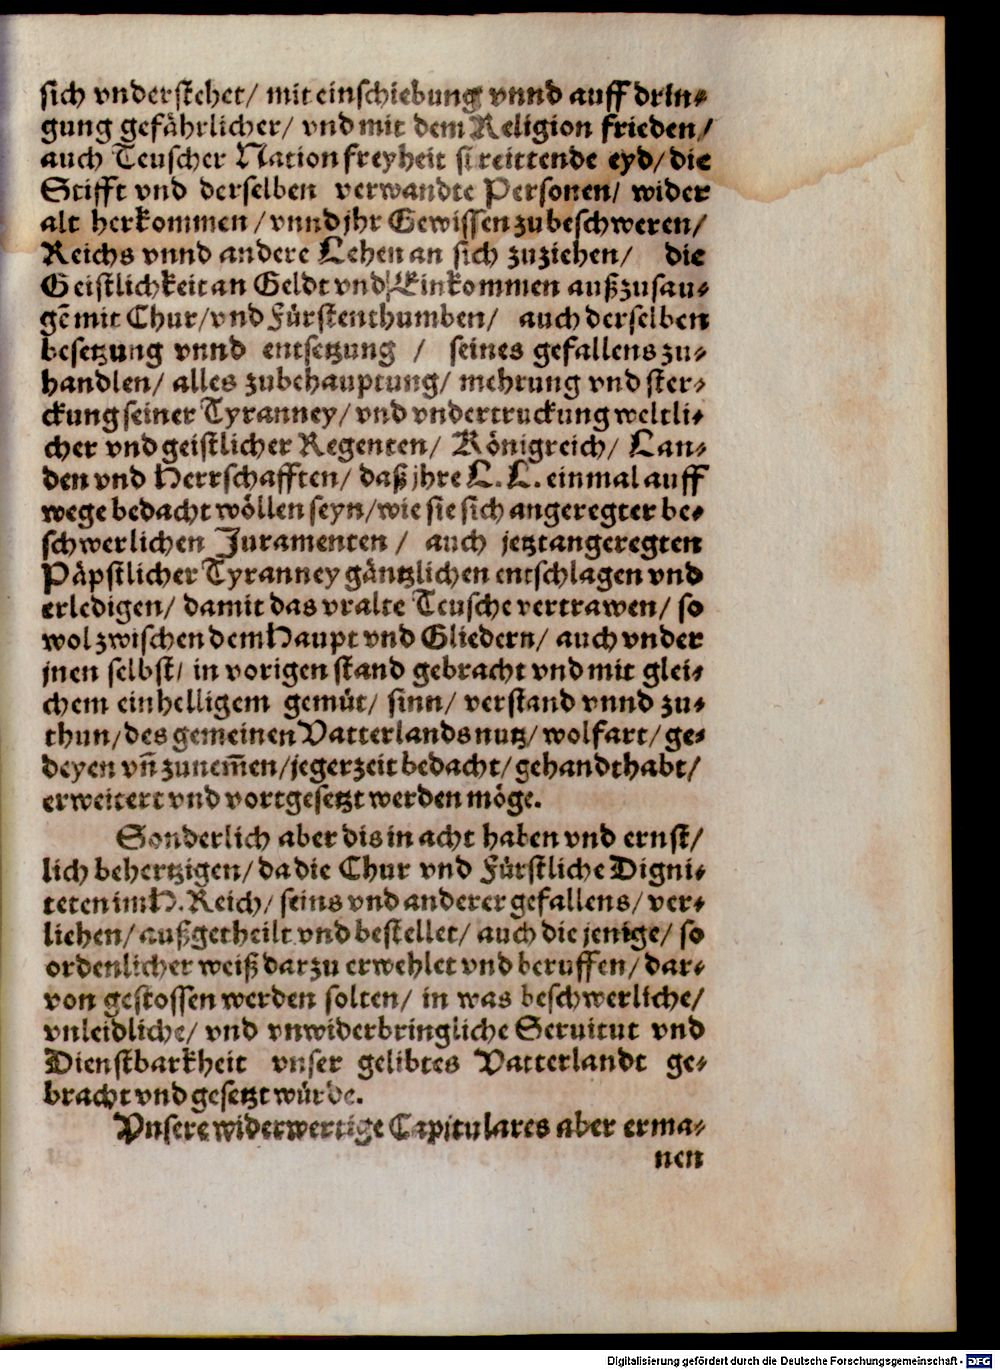 sich vnderstehet/ mit einschiebung vnnd auff drin-
gung gefährlicher/ vnd mit dem Religion frieden/
auch Teuscher Nation freyheit streittende eyd/ die
Stifft vnd derselben verwandte Personen/ wider
alt herkommen/ vnnd jhr Gewissen zubeschweren/
Reichs vnnd andere Lehen an sich zuziehen/ die
Geistlichkeit an Geldt vnd Einkommen außzusau-
gē mit Chur/ vnd Fürstenthumben/ auch derselben
besetzung vnnd entsetzung / seines gefallens zu-
handlen/ alles zubehauptung/ mehrung vnd ster-
ckung seiner Tyranney/ vnd vndertruckung weltli-
cher vnd geistlicher Regenten/ Königreich/ Lan-
den vnd Herrschafften/ daß jhre L. L. einmal auff
wege bedacht wöllen seyn/ wie sie sich angeregter be-
schwerlichen Juramenten/ auch jetztangeregten
Päpstlicher Tyranney gäntzlichen entschlagen vnd
erledigen/ damit das vralte Teusche vertrawen/ so
wol zwischen dem Haupt vnd Gliedern/ auch vnder
jnen selbst/ in vorigen stand gebracht vnd mit glei-
chem einhelligem gemüt/ sinn/ verstand vnnd zu-
thun/ des gemeinen Vatterlands nutz/ wolfart/ ge-
deyen vñ zunem̃en/ jegerzeit bedacht/ gehandthabt/
erweitert vnd vortgesetzt werden möge.
Sonderlich aber dis in acht haben vnd ernst/
lich behertzigen/ da die Chur vnd Fürstliche Digni-
teten im H. Reich/ seins vnd anderer gefallens/ ver-
liehen/ außgetheilt vnd bestellet/ auch die jenige/ so
ordenlicher weiß darzu erwehlet vnd beruffen/ dar-
von gestossen werden solten/ in was beschwerliche/
vnleidliche/ vnd vnwiderbringliche Seruitut vnd
Dienstbarkheit vnser gelibtes Vatterlandt ge-
bracht vnd gesetzt würde.
Vnsere widerwertige Capitulares aber erma-
nen
Digitalisierung gefördert durch die Deutsche Forschungsgemeinschaft - DFG